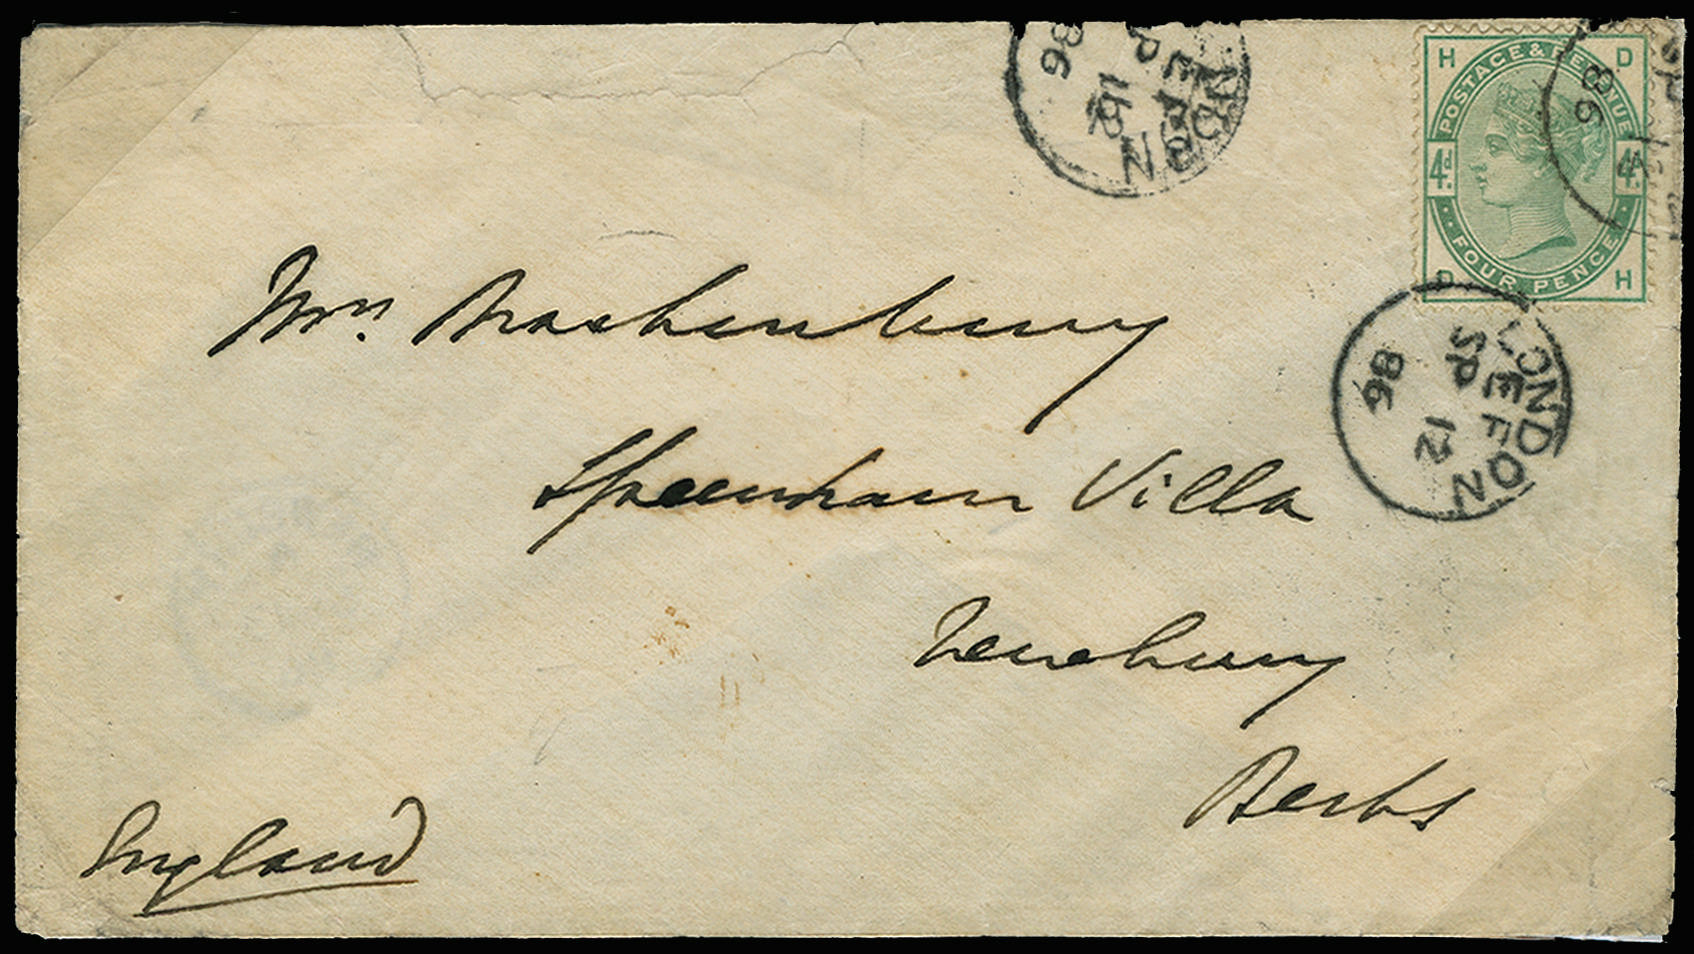 LONDON
E F
SP 12
86
H D
POSTAGE & REVENUE
4d. 4d.
FOUR PENCE
D H
86
LONDON
E F
SP 12
86
Mrs Brackenbury
Speenham Villa
Newbury
Berks
England